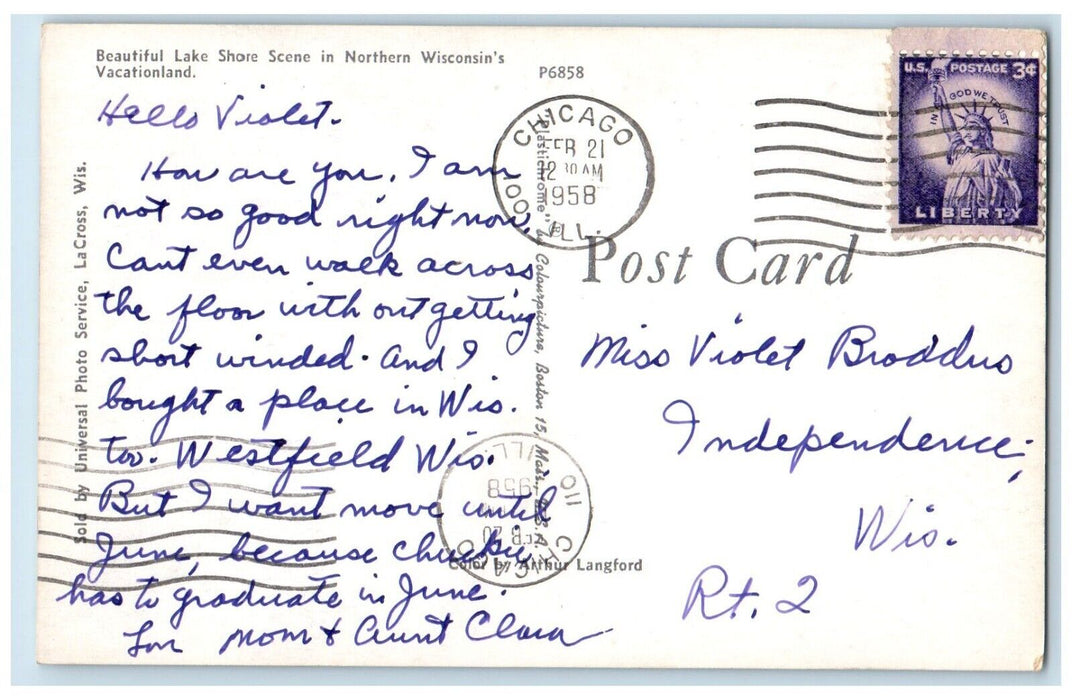 Beautiful Lake Shore Scene in Northern Wisconsin's
Vacationland.
P6858
Hello Violet.
How are you. I am
not so good right now.
Cant even walk across
the floor with out getting
short winded. And I
bought a place in Wis.
too. Westfield Wis.
But I want move until
June, because Chucky
has to graduate in June.
Mom & Aunt Clara
Sold by Universal Photo Service, LaCross, Wis.
Plastichrome" by Colourpicture, Boston 15, Mass., U.S.A.
Color by Arthur Langford
CHICAGO
FEB 21
12 30 AM
1958
ILL.
U.S. POSTAGE 3¢
IN GOD WE TRUST
LIBERTY
Post Card
Miss Violet Broddus
Independence,
Wis.
Rt. 2
CHICAGO
FEB 20
1958
ILL.